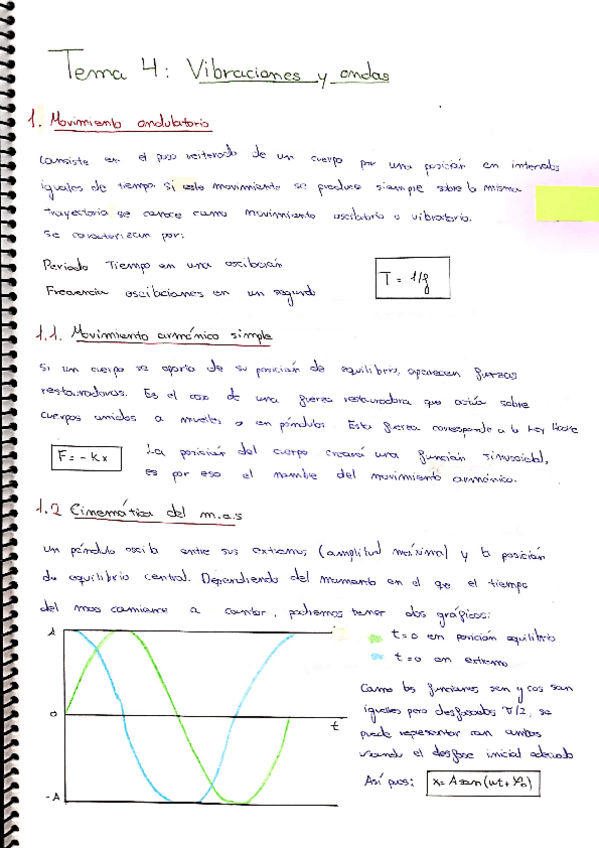 Tema 4: Vibraciones y ondas
1. Movimiento ondulatorio
Consiste en el paso reiterado de un cuerpo por una posición en intervalos
iguales de tiempo. Si este movimiento se produce siempre sobre la misma
trayectoria se conoce como movimiento oscilatorio o vibratorio.
Se caracterizan por:
Periodo Tiempo en una oscilación
T = 1/f
Frecuencia oscilaciones en un segundo
1.1. Movimiento armónico simple
Si un cuerpo se aparta de su posición de equilibrio, aparecen fuerzas
restauradoras. Es el caso de una fuerza restauradora que actúa sobre
cuerpos unidos a muelles o en péndulos. Esta fuerza corresponde a la Ley Hooke
F = - Kx
La posición del cuerpo creará una función sinusoidal,
es por eso el nombre del movimiento armónico.
1.2 Cinemática del m.a.s
Un péndulo oscila entre sus extremos (amplitud máxima) y la posición
de equilibrio central. Dependiendo del momento en el que el tiempo
del mas comience a contar, podremos tener dos gráficos:
A
t=0 en posición equilibrio
t=0 en extremo
0
t
-A
Como las funciones sen y cos son
iguales pero desfasadas π/2, se
puede representar con ambas
usando el desfase inicial adecuado
Así pues: x= A sen (ωt + φ₀)